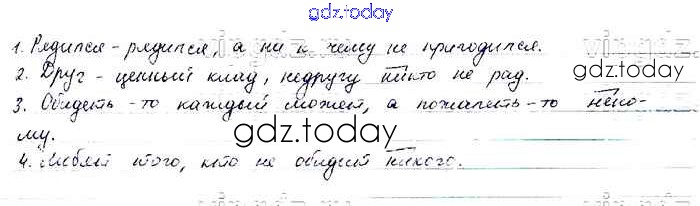 gdz.today
1. Рядился - рядился, а ни к чему не пригодился.
2. Друг - ценный клад, недругу никто не рад.
gdz.today
3. Обидеть - то каждый может, а пожалеть - то неко-
му.
gdz.today
4. Люблю того, кто не обидит никого.